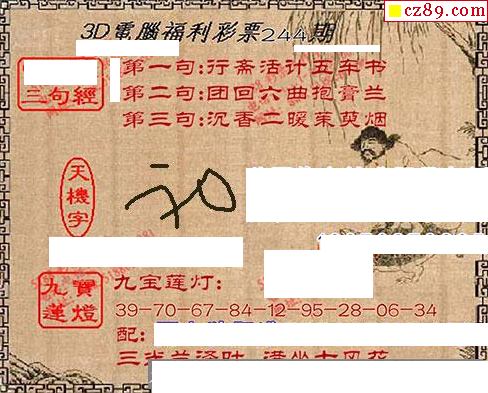 cz89.com
3D電腦福利彩票244期
三句經
第一句:行斋活计五车书
第二句:团回六曲抱膏兰
第三句:沉香二暖茱萸烟
天機字
九寶蓮燈
九宝莲灯:
39-70-67-84-12-95-28-06-34
配: